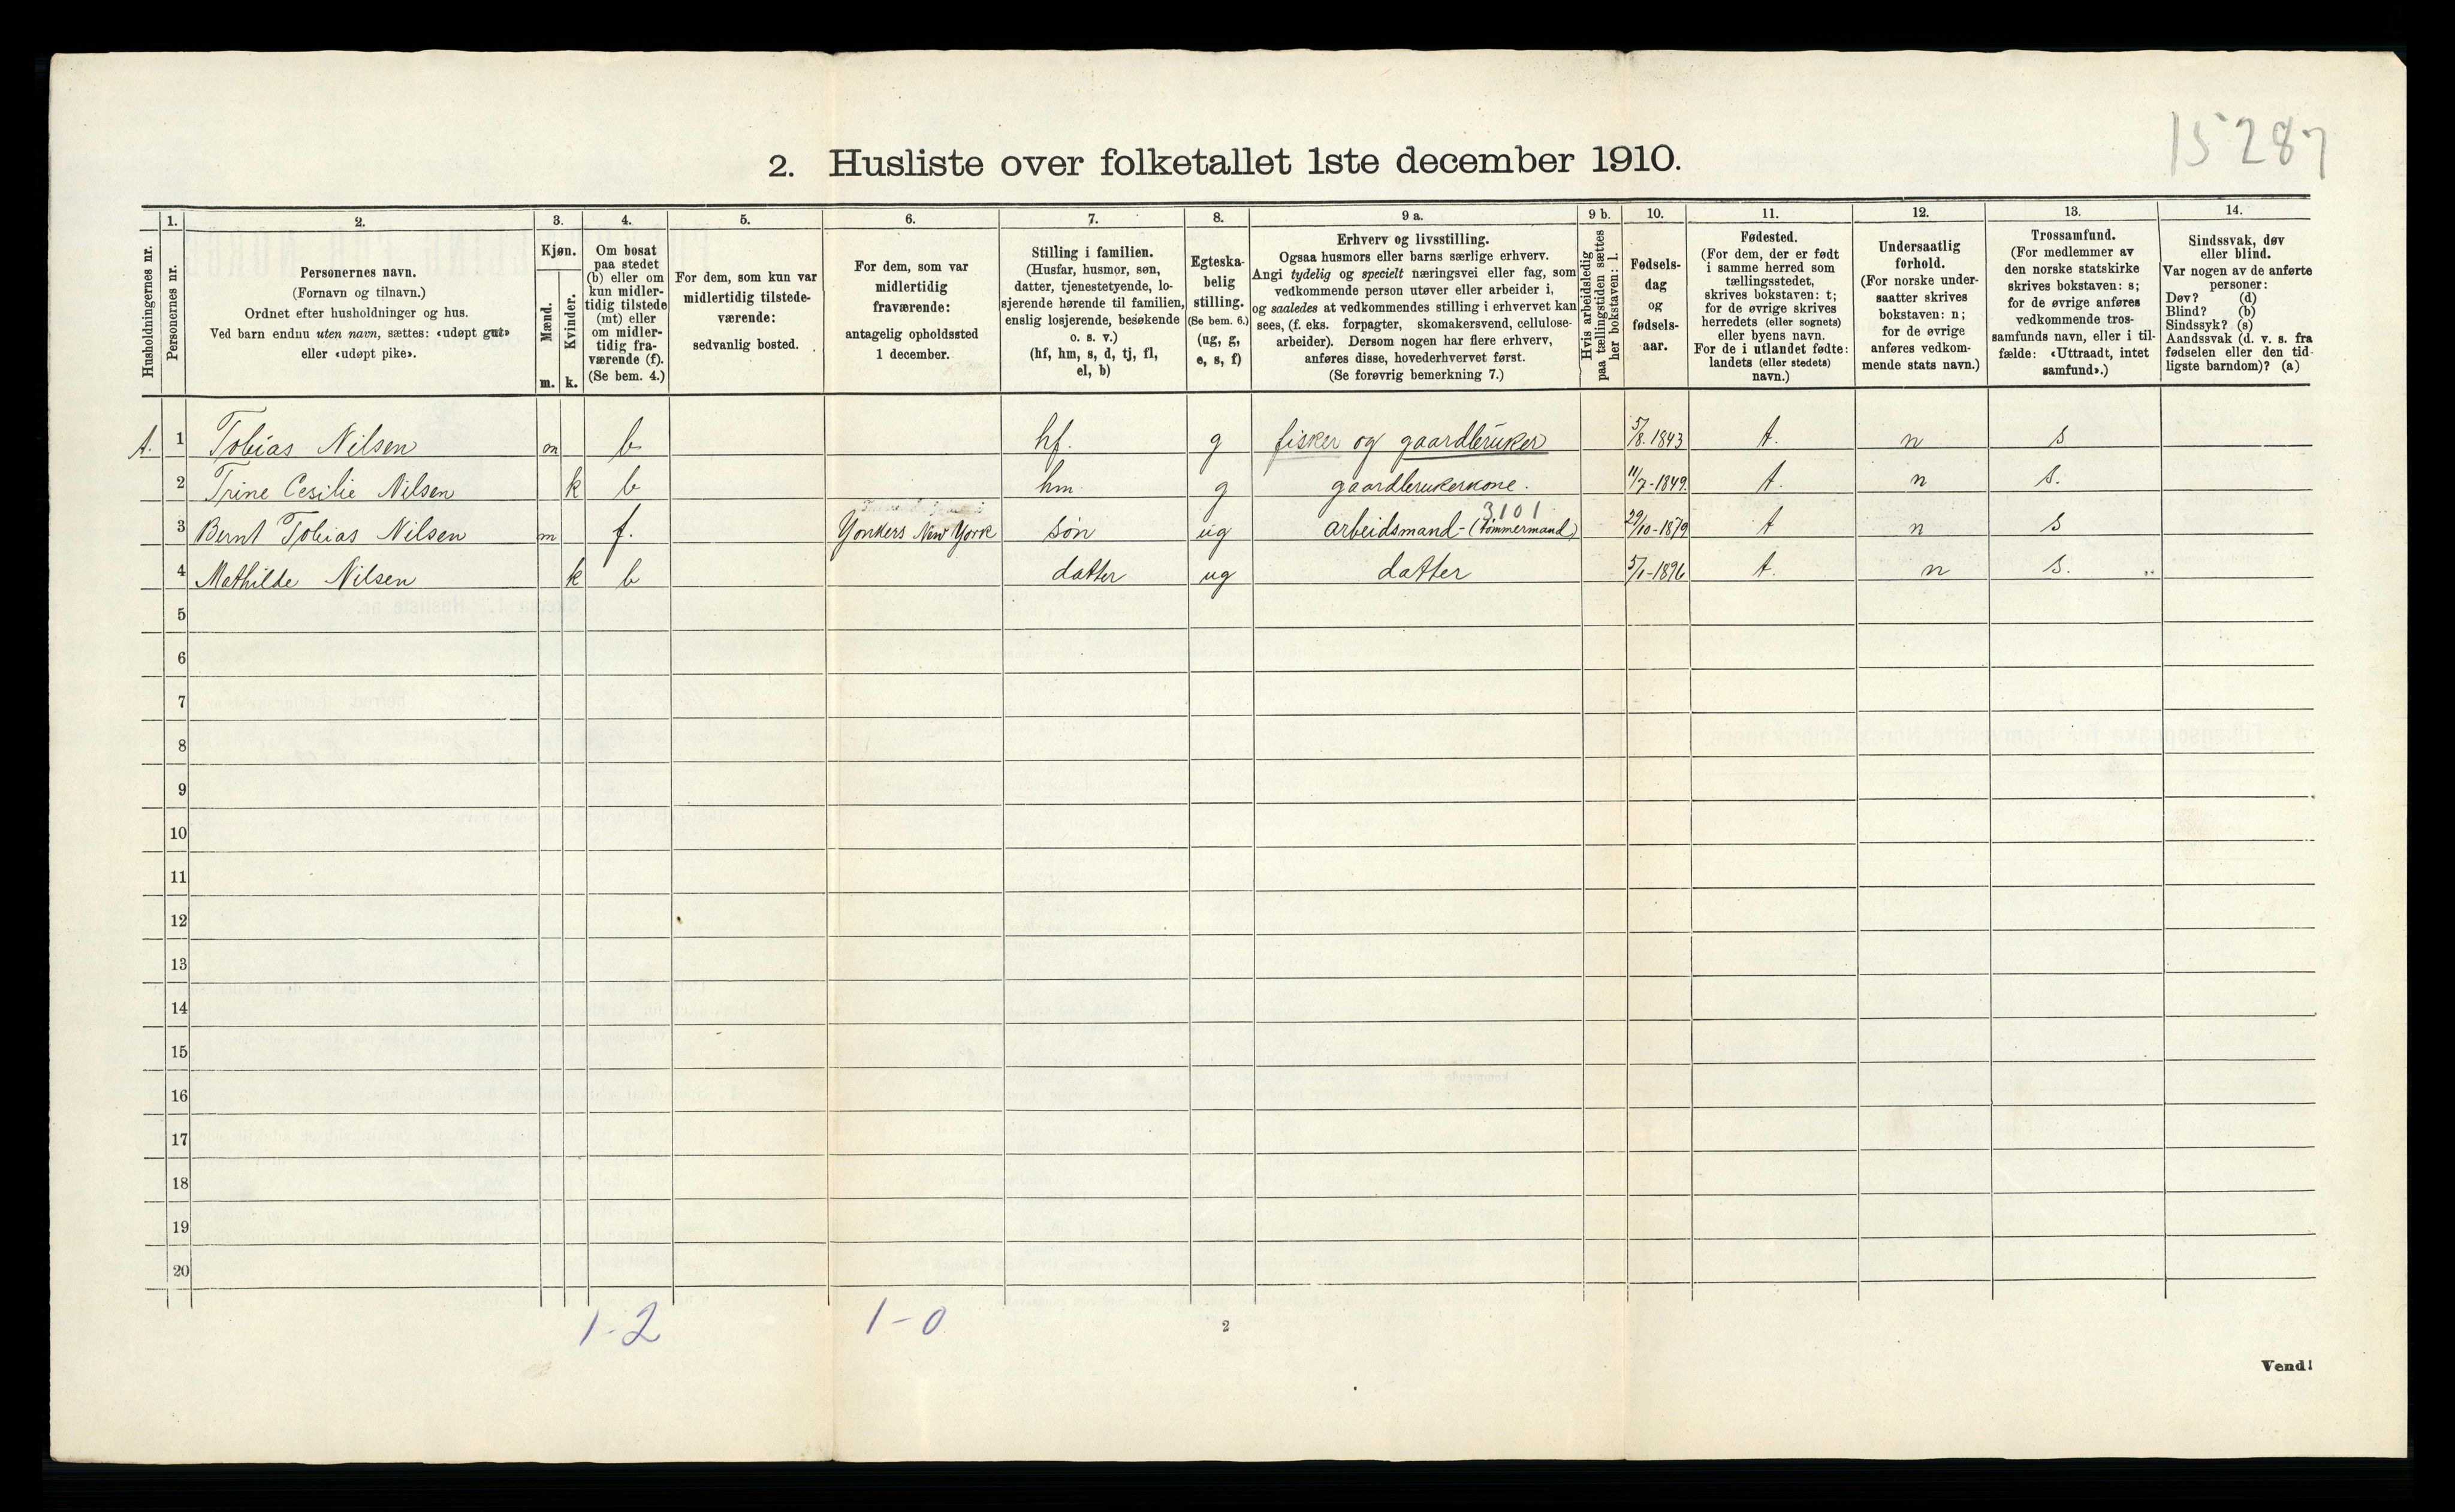 15287
2. Husliste over folketallet 1ste december 1910.
Husholdningernes nr.
1.
Personernes nr.
2.
Personernes navn.
(Fornavn og tilnavn.)
Ordnet efter husholdninger og hus.
Ved barn endnu uten navn, sættes: «udøpt gut»
eller «udøpt pike».
3.
Kjøn.
Mænd.
m.
Kvinder.
k.
4.
Om bosat
paa stedet
(b) eller om
kun midler-
tidig tilstede
(mt) eller
om midler-
tidig fra-
værende (f).
(Se bem. 4.)
5.
For dem, som kun var
midlertidig tilstede-
værende:
sedvanlig bosted.
6.
For dem, som var
midlertidig
fraværende:
antagelig opholdssted
1 december.
7.
Stilling i familien.
(Husfar, husmor, søn,
datter, tjenestetyende, lo-
sjerende hørende til familien,
enslig losjerende, besøkende
o. s. v.)
(hf, hm, s, d, tj, fl,
el, b)
8.
Egteska-
belig
stilling.
(Se bem. 6.)
(ug, g,
e, s, f)
9 a.
Erhverv og livsstilling.
Ogsaa husmors eller barns særlige erhverv.
Angi tydelig og specielt næringsvei eller fag, som
vedkommende person utøver eller arbeider i,
og saaledes at vedkommendes stilling i erhvervet kan
sees, (f. eks. forpagter, skomakersvend, cellulose-
arbeider). Dersom nogen har flere erhverv,
anføres disse, hovederhvervet først.
(Se forøvrig bemerkning 7.)
9 b.
Hvis arbeidsledig
paa tællingstiden sættes
her bokstaven: l.
10.
Fødsels-
dag
og
fødsels-
aar.
11.
Fødested.
(For dem, der er født
i samme herred som
tællingsstedet,
skrives bokstaven: t;
for de øvrige skrives
herredets (eller sognets)
eller byens navn.
For de i utlandet fødte:
landets (eller stedets)
navn.)
12.
Undersaatlig
forhold.
(For norske under-
saatter skrives
bokstaven: n;
for de øvrige
anføres vedkom-
mende stats navn.)
13.
Trossamfund.
(For medlemmer av
den norske statskirke
skrives bokstaven: s;
for de øvrige anføres
vedkommende tros-
samfunds navn, eller i til-
fælde: «Uttraadt, intet
samfund».)
14.
Sindssvak, døv
eller blind.
Var nogen av de anførte
personer:
Døv? (d)
Blind? (b)
Sindssyk? (s)
Aandssvak (d. v. s. fra
fødselen eller den tid-
ligste barndom)? (a)
1 Tobias Nilsen m b hf. g fisker og gaardbruker 5/8. 1843 t. n s
2 Trine Cesilie Nilsen k b hm g gaardbrukerkone. 11/7-1849. t. n s.
3101
3 Bernt Tobias Nilsen m f. Yonkers New York søn ug arbeidsmand-(tømmermand) 29/10-1879 t n s
4 Mathilde Nilsen k b datter ug datter 5/1-1896 t. n s.
5
6
7
8
9
10
11
12
13
14
15
16
17
18
19
20
1-2 1-0
2
Vend!